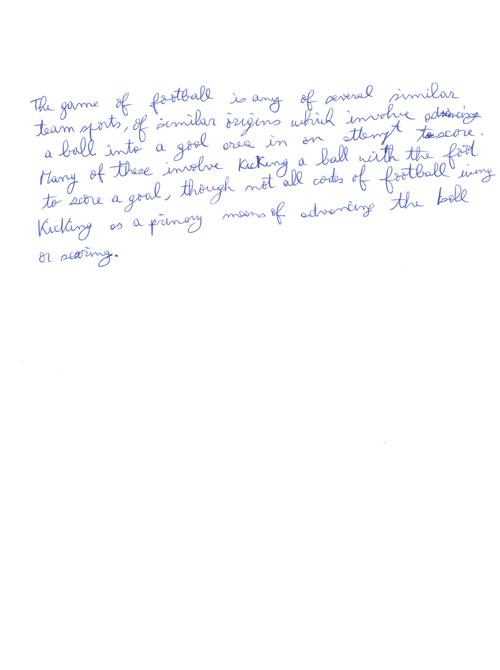 The game of football is any of several similar
team sports, of similar origins which involve advancing
a ball into a goal area in an attempt to score.
Many of these involve kicking a ball with the foot
to score a goal, though not all codes of football using
kicking as a primary means of advancing the ball
or scoring.